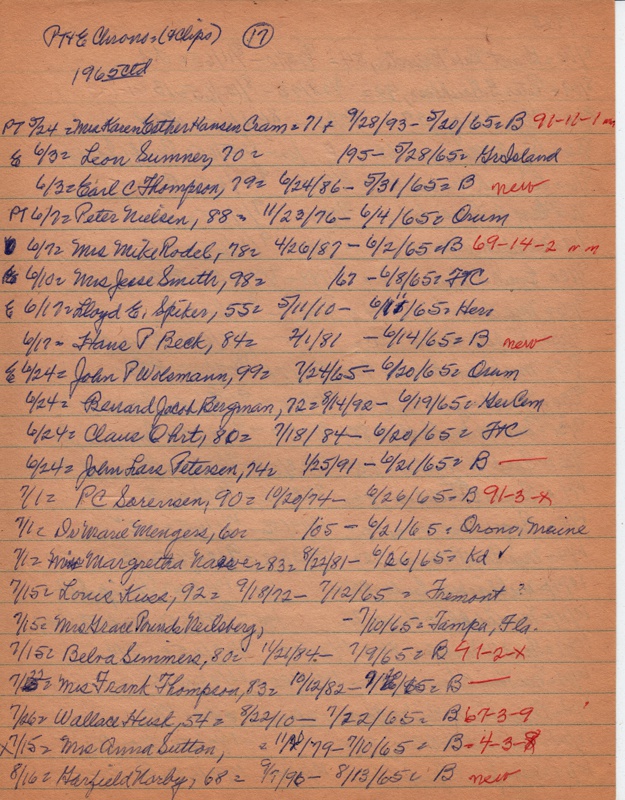 PT & E Chrono = (& Clips) 17
1965 ctd
PT 5/24 = Mrs Karen Esther Hansen Cram = 71 + 9/28/93 - 5/20/65 = B 91-11-1
E 6/3 = Leon Sumner, 70 = /95 - 5/28/65 = Gr Island
6/3 = Earl C Thompson, 79 = 6/24/86 - 5/31/65 = B new
PT 6/7 = Peter Nielsen, 88 = 11/23/76 - 6/4/65 = Orum
6/7 = Mrs Mike Rodel, 78 = 4/26/87 - 6/2/65 = B 69-14-2
6/10 = Mrs Jesse Smith, 98 = /67 - 6/8/65 = FC
E 6/17 = Lloyd E. Spiker, 55 = 5/11/10 - 6/11/65 = Her
6/17 = Hans P Beck, 84 = 2/1/81 - 6/14/65 = B new
E 6/24 = John P Wolsmann, 99 = 7/24/65 - 6/20/65 = Orum
6/24 = Bernard Jacob Bergman, 72 = 8/14/92 - 6/19/65 = Her Cem
6/24 = Claus Ohrt, 80 = 7/18/84 - 6/20/65 = FC
6/24 = John Lars Petersen, 74 = 1/25/91 - 6/21/65 = B —
7/1 = PC Sorensen, 90 = 10/20/74 - 6/26/65 = B 91-3-x
7/1 = DeMarie Mengers, 60 = /05 - 6/21/65 = Orono, Maine
7/1 = Margretha 83 = 8/22/81 - 6/26/65 = Kd ✓
7/15 = Louis Kuss, 92 = 9/18/72 - 7/12/65 = Fremont ?
7/15 = Mrs Grace Neilsberg, - 7/10/65 = Tampa, Fla.
7/15 = Belva Simmers, 80 = 11/21/84 - 7/9/65 = B 91-2-x
= Mrs Frank Thompson, 83 = 10/12/82 - = B —
7/26 = Wallace Husk, 54 = 8/22/10 - 7/22/65 = B 67-3-9
x 7/15 = Mrs Anna Sutton, = /79 - 7/10/65 = B = 4-3-8
8/16 = Garfield Norby, 68 = 9/7/96 - 8/13/65 = B new